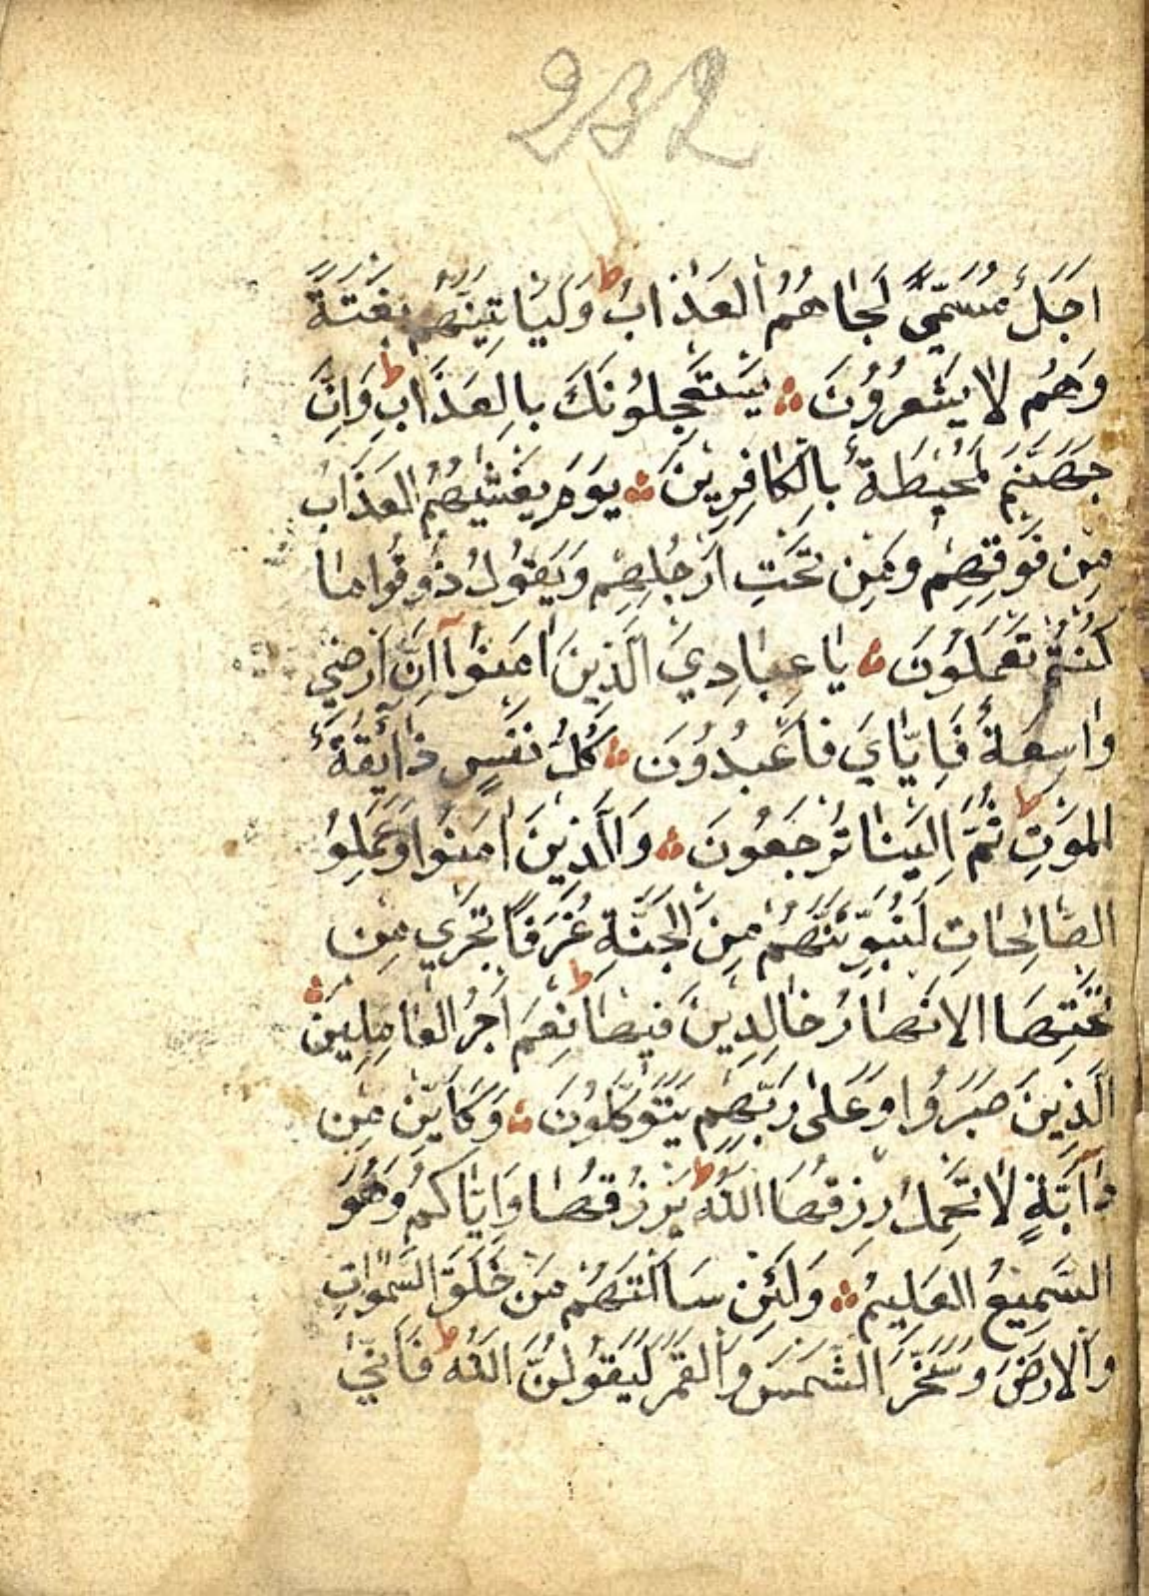 232
اَجَلٌ مُسَمًّى لَجَاهُمُ الْعَذَابُ ط وَلَيَاتِيَنَّهُمْ بَغْتَةً
وَهُمْ لَا يَشْعُرُونَ يَسْتَعْجِلُونَكَ بِالْعَذَابِ ط وَاِنَّ
جَهَنَّمَ لَمُحِيطَةٌ بِالْكَافِرِينَ يَوْمَ يَغْشٰيهُمُ الْعَذَابُ
مِنْ فَوْقِهِمْ وَمِنْ تَحْتِ اَرْجُلِهِمْ وَيَقُولُ ذُوقُوا مَا
كُنْتُمْ تَعْمَلُونَ يَا عِبَادِيَ الَّذِينَ اٰمَنُوٓا اِنَّ اَرْضِي
وَاسِعَةٌ فَاِيَّايَ فَاعْبُدُونَ كُلُّ نَفْسٍ ذَآئِقَةُ
الْمَوْتِ ط ثُمَّ اِلَيْنَا تُرْجَعُونَ وَاالَّذِينَ اٰمَنُوا وَعَمِلُوا
الصَّالِحَاتِ لَنُبَوِّئَنَّهُمْ مِنَ الْجَنَّةِ غُرَفًا تَجْرِي مِنْ
تَحْتِهَا الْاَنْهَارُ خَالِدِينَ فِيهَا ط نِعْمَ اَجْرُ الْعَامِلِينَ
الَّذِينَ صَبَرُوا وَعَلٰى رَبِّهِمْ يَتَوَكَّلُونَ وَكَاَيِّنْ مِنْ
دَآبَّةٍ لَا تَحْمِلُ رِزْقَهَا اللّٰهُ ط يَرْزُقُهَا وَاِيَّاكُمْ وَهُوَ
السَّمِيعُ الْعَلِيمُ وَلَئِنْ سَاَلْتَهُمْ مَنْ خَلَقَ السَّمٰوَاتِ
وَالْاَرْضَ وَسَخَّرَ الشَّمْسَ وَالْقَمَرَ لَيَقُولُنَّ اللّٰهُ ط فَاَنّٰى